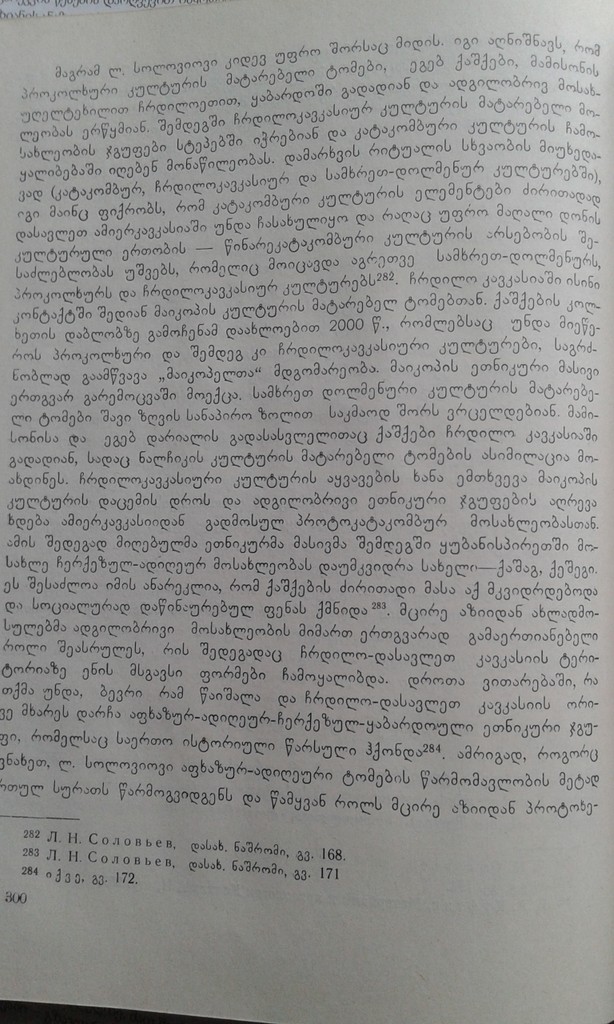 მაგრამ ლ. სოლოვიოვი კიდევ უფრო შორსაც მიდის. იგი აღნიშნავს, რომ
პროკოლხური კულტურის მატარებელი ტომები, ეგებ ქაშქები, მამისონის
უღელტეხილით ჩრდილოეთით, ყაბარდოში გადადიან და ადგილობრივ მოსახ-
ლეობას ერწყმიან. შემდეგში ჩრდილოკავკასიურ კულტურის მატარებელი მო-
სახლეობის ჯგუფები სტეპებში იჭრებიან და კატაკომბური კულტურის ჩამო-
ყალიბებაში იღებენ მონაწილეობას. დამარხვის რიტუალის სხვაობის მიუხედა-
ვად (კატაკომბურ, ჩრდილოკავკასიურ და სამხრეთ-დოლმენურ კულტურებში),
იგი მაინც ფიქრობს, რომ კატაკომბური კულტურის ელემენტები ძირითადად
დასავლეთ ამიერკავკასიაში უნდა ჩასახულიყო და რაღაც უფრო მაღალი დონის
კულტურული ერთობის — წინარეკატაკომბური კულტურის არსებობის შე-
საძლებლობას უშვებს, რომელიც მოიცავდა აგრეთვე სამხრეთ-დოლმენურს,
პროკოლხურს და ჩრდილოკავკასიურ კულტურებს²⁸². ჩრდილო კავკასიაში ისინი
კონტაქტში შედიან მაიკოპის კულტურის მატარებელ ტომებთან. ქაშქების კოლ-
ხეთის დაბლობზე გამოჩენამ დაახლოებით 2000 წ., რომლებსაც უნდა მიეწე-
როს პროკოლხური და შემდეგ კი ჩრდილოკავკასიური კულტურები, საგრძ-
ნობლად გაამწვავა „მაიკოპელთა“ მდგომარეობა. მაიკოპის ეთნიკური მასივი
ერთგვარ გარემოცვაში მოექცა. სამხრეთ დოლმენური კულტურის მატარებე-
ლი ტომები შავი ზღვის სანაპირო ზოლით საკმაოდ შორს ვრცელდებიან. მამი-
სონისა და ეგებ დარიალის გადასასვლელითაც ქაშქები ჩრდილო კავკასიაში
გადადიან, სადაც ნალჩიკის კულტურის მატარებელი ტომების ასიმილაცია მო-
ახდინეს. ჩრდილოკავკასიური კულტურის აყვავების ხანა ემთხვევა მაიკოპის
კულტურის დაცემის დროს და ადგილობრივი ეთნიკური ჯგუფების აღრევა
ხდება ამიერკავკასიიდან გადმოსულ პროტოკატაკომბურ მოსახლეობასთან.
ამის შედეგად მიღებულმა ეთნიკურმა მასივმა შემდეგში ყუბანისპირეთში მო-
სახლე ჩერქეზულ-ადიღეურ მოსახლეობას დაუმკვიდრა სახელი—ქაშაგ, ქეშეგი.
ეს შესაძლოა იმის ანარეკლია, რომ ქაშქების ძირითადი მასა აქ მკვიდრდებოდა
და სოციალურად დაწინაურებულ ფენას ქმნიდა²⁸³. მცირე აზიიდან ახლადმო-
სულებმა ადგილობრივი მოსახლეობის მიმართ ერთგვარად გამაერთიანებელი
როლი შეასრულეს, რის შედეგადაც ჩრდილო-დასავლეთ კავკასიის ტერი-
ტორიაზე ენის მსგავსი ფორმები ჩამოყალიბდა. დროთა ვითარებაში, რა
თქმა უნდა, ბევრი რამ წაიშალა და ჩრდილო-დასავლეთ კავკასიის ორი-
ვე მხარეს დარჩა აფხაზურ-ადიღეურ-ჩერქეზულ-ყაბარდოული ეთნიკური ჯგუ-
ფი, რომელსაც საერთო ისტორიული წარსული ჰქონდა²⁸⁴. ამრიგად, როგორც
ვნახეთ, ლ. სოლოვიოვი აფხაზურ-ადიღეური ტომების წარმომავლობის მეტად
რთულ სურათს წარმოგვიდგენს და წამყვან როლს მცირე აზიიდან პროტოხე-
²⁸² Л. Н. Соловьев, დასახ. ნაშრომი, გვ. 168.
²⁸³ Л. Н. Соловьев, დასახ. ნაშრომი, გვ. 171
²⁸⁴ იქვე, გვ. 172.
300